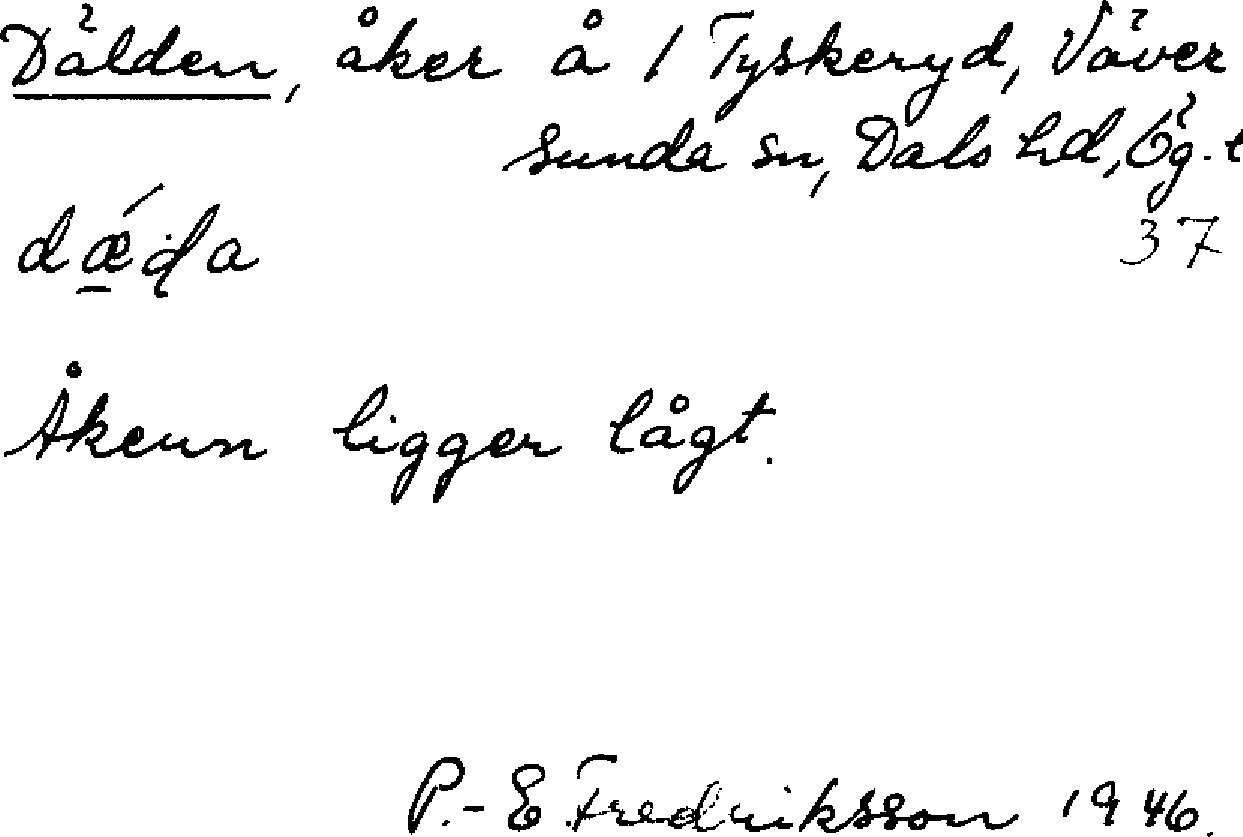 Dälden, åker å 1 Tyskeryd, Väver
sunda sn, Dals hd, Ög.t
37
Åkern ligger lågt.
P.-E. Fredriksson 1946.